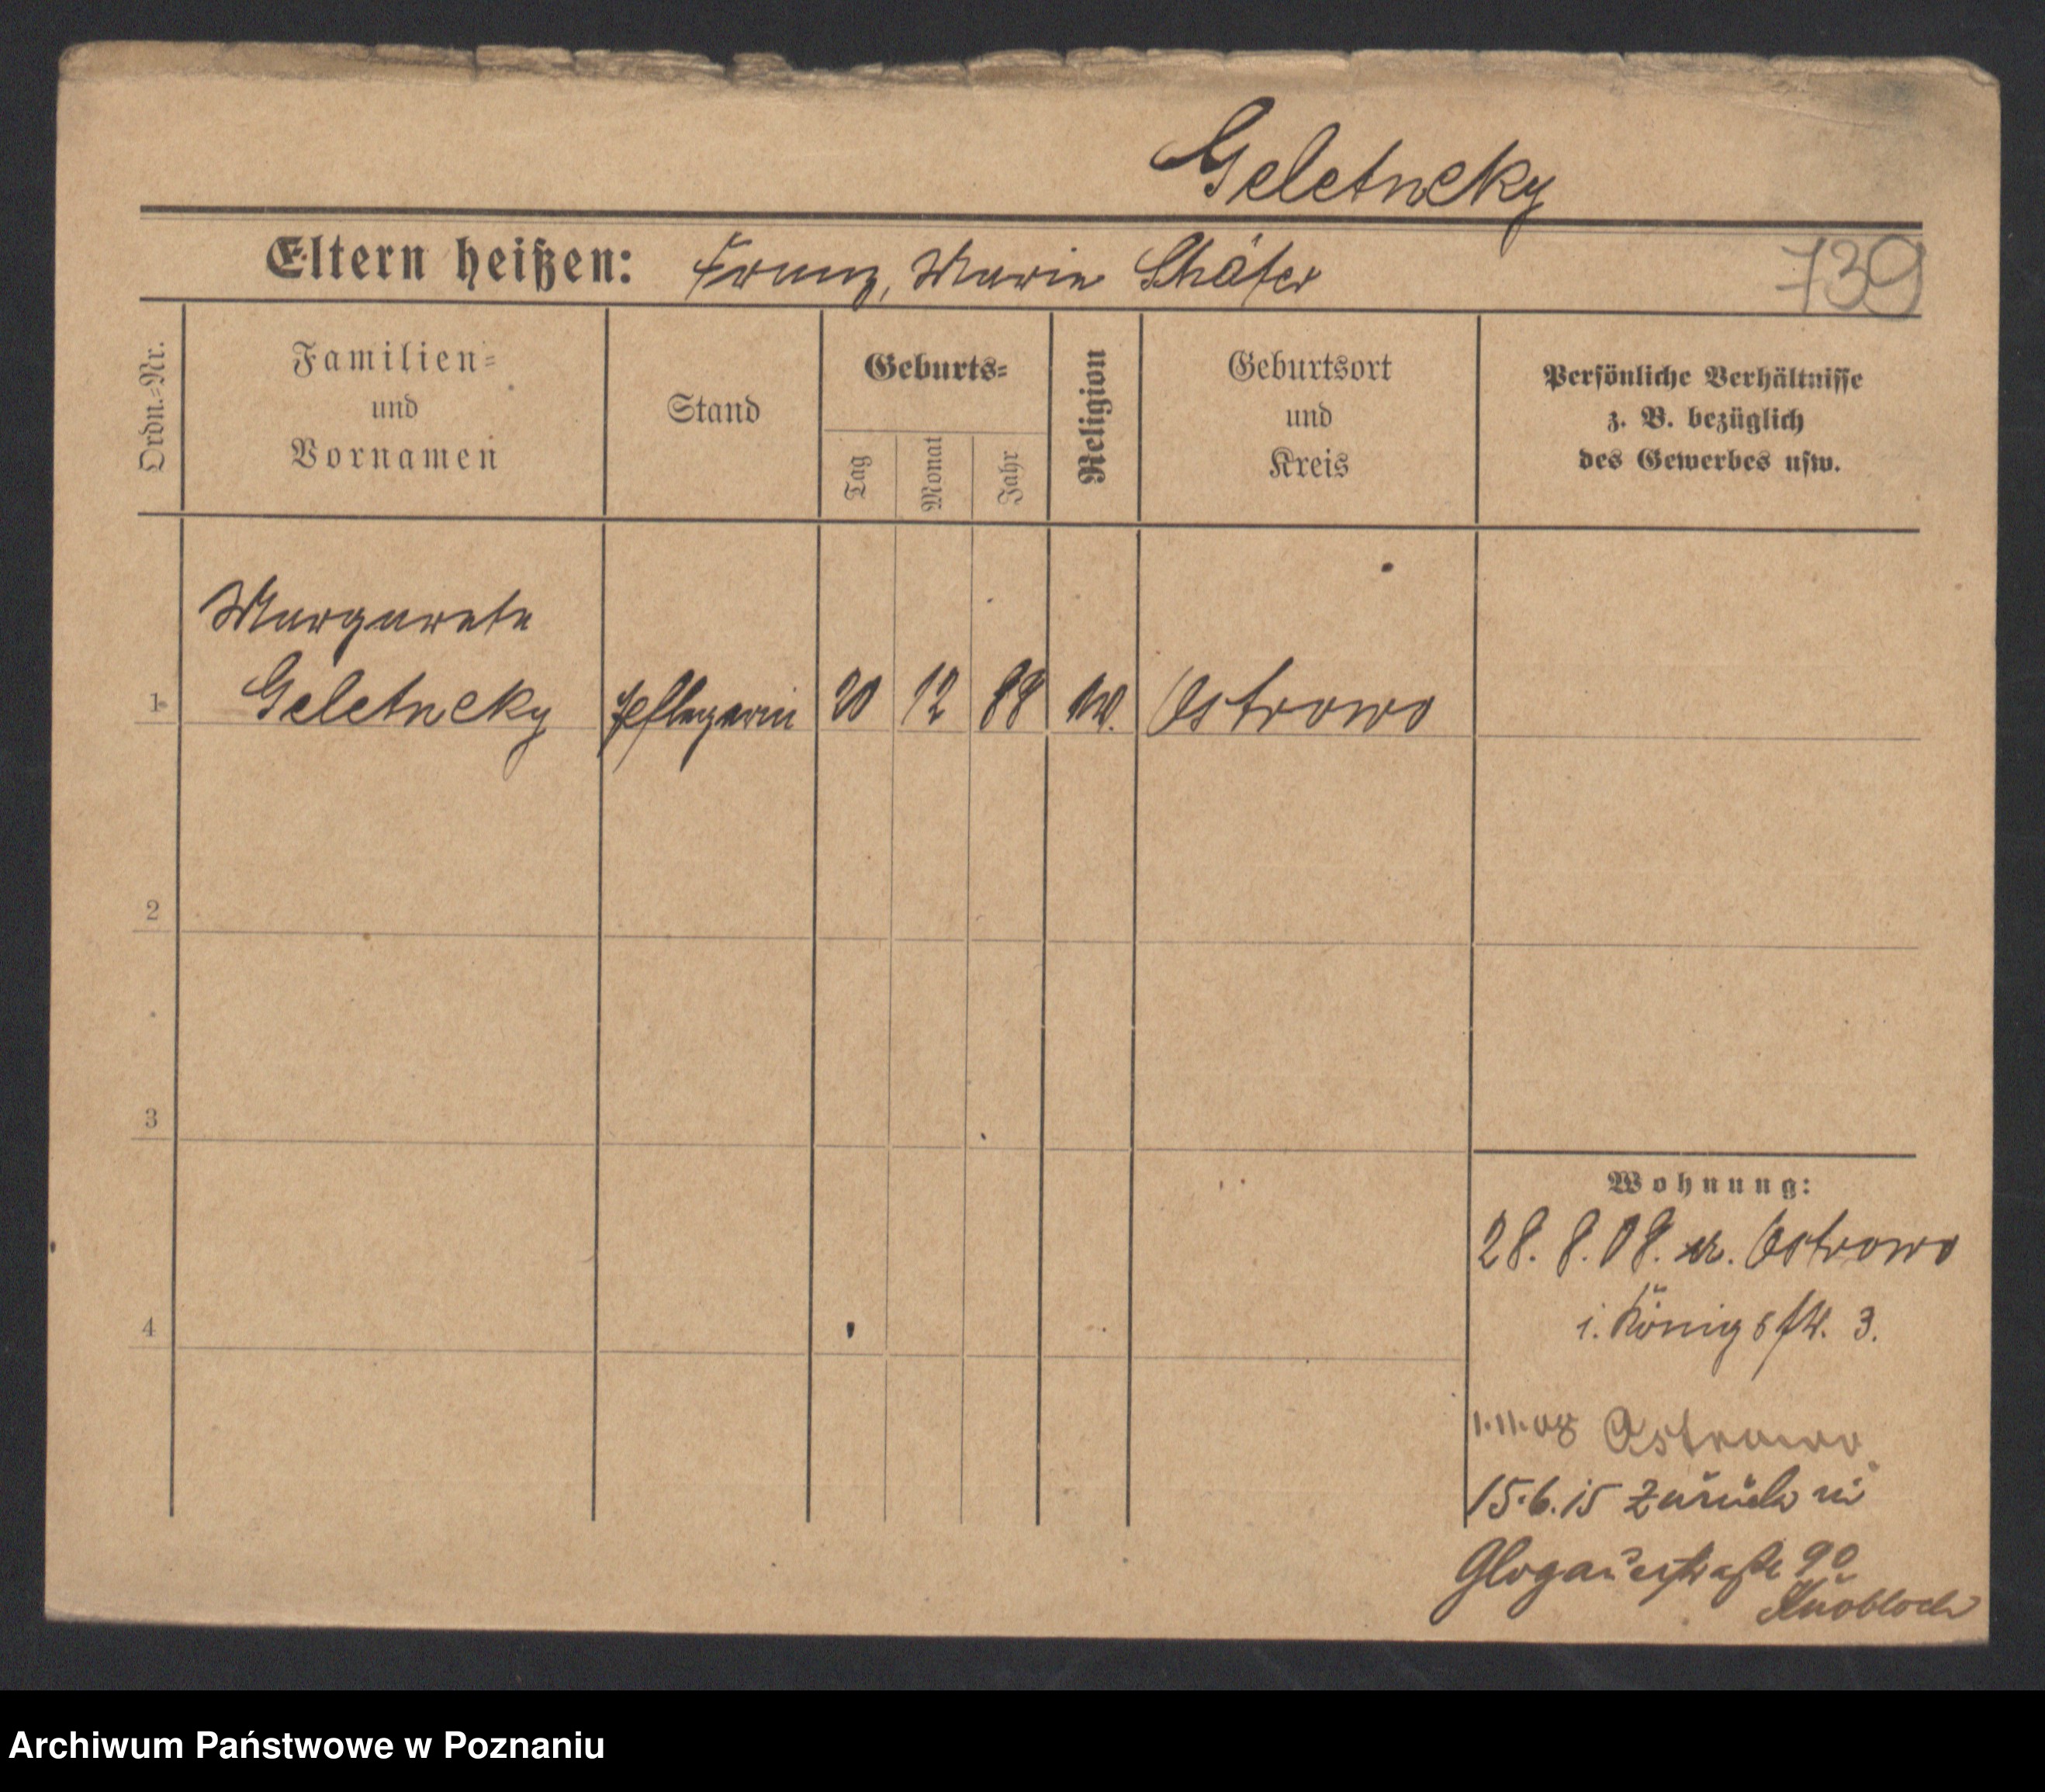 Geletneky
Eltern heißen: Franz, Marie Schäfer
739
Ordn.-Nr.
Familien-
und
Vornamen
Stand
Geburts-
Tag
Monat
Jahr
Religion
Geburtsort
und
Kreis
Persönliche Verhältnisse
z. B. bezüglich
des Gewerbes usw.
Margarete
1 Geletneky Pflegerin 20 12 88 Ostrowo
2
3
4
Wohnung:
28. 8. 08. Ostrowo
i. Königstr. 3.
1.11.08 Ostrowo
15.6.15 zurück in
Glogauerstraße 90
Knobloch
Archiwum Państwowe w Poznaniu